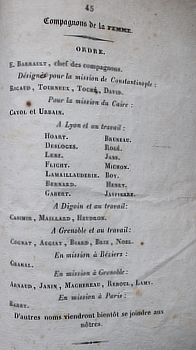 45
Compagnons de la FEMME.
ORDRE.
E. BARRAULT, chef des compagnons.
Désignés pour la mission de Constantinople :
RIGAUD, TOURNEUX, TOCHÉ, DAVID.
Pour la mission du Caire :
CAYOL et URBAIN.
A Lyon et au travail :
HOART. BRUNEAU.
DESLOGES. ROGÉ.
LERE. JANS.
FLICHY. MICHON.
LAMAILLAUDERIE. BOY.
BERNARD. HENRY.
GABERT. JAVPIERRE.
A Digoin et au travail :
CASIMIR, MAILLARD, HEUDRON.
A Grenoble et au travail :
COGNAT, BIARD, BRIE, NOEL.
En mission à Béziers :
En mission à Grenoble :
ARNAUD, JANIN, MACHEREAU, REBOUL, LAMY.
En mission à Paris :
BARRY.
D'autres noms viendront bientôt se joindre aux
nôtres.